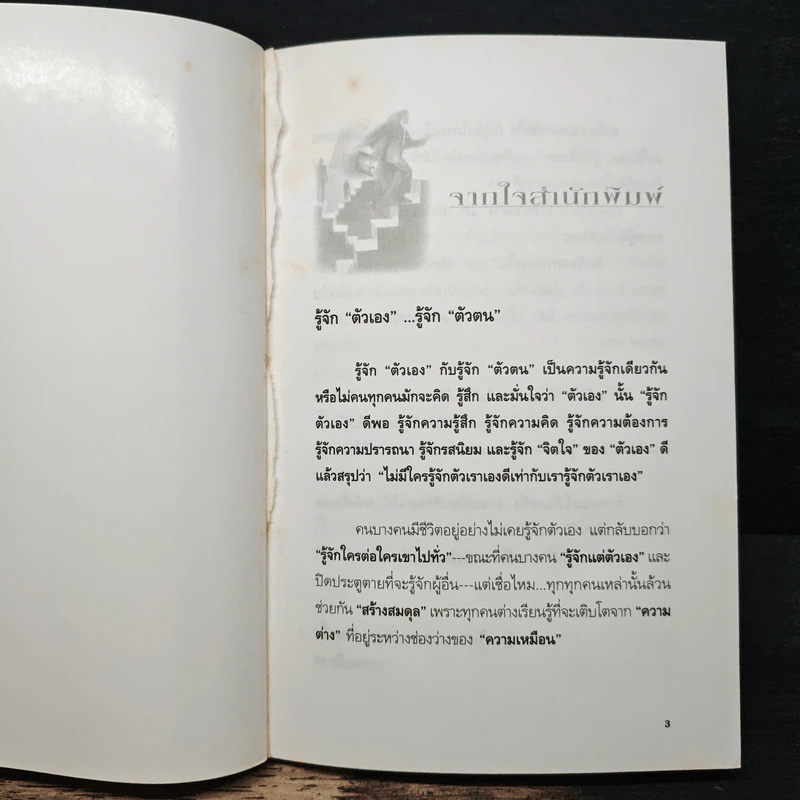 จากใจสำนักพิมพ์
รู้จัก “ตัวเอง” ...รู้จัก “ตัวตน”
รู้จัก “ตัวเอง” กับรู้จัก “ตัวตน” เป็นความรู้จักเดียวกัน
หรือไม่คนทุกคนมักจะคิด รู้สึก และมั่นใจว่า “ตัวเอง” นั้น “รู้จัก
ตัวเอง” ดีพอ รู้จักความรู้สึก รู้จักความคิด รู้จักความต้องการ
รู้จักความปรารถนา รู้จักรสนิยม และรู้จัก “จิตใจ” ของ “ตัวเอง” ดี
แล้วสรุปว่า “ไม่มีใครรู้จักตัวเราเองดีเท่ากับเรารู้จักตัวเราเอง”
คนบางคนมีชีวิตอยู่อย่างไม่เคยรู้จักตัวเอง แต่กลับบอกว่า
“รู้จักใครต่อใครเขาไปทั่ว”---ขณะที่คนบางคน “รู้จักแต่ตัวเอง” และ
ปิดประตูตายที่จะรู้จักผู้อื่น---แต่เชื่อไหม...ทุกทุกคนเหล่านั้นล้วน
ช่วยกัน “สร้างสมดุล” เพราะทุกคนต่างเรียนรู้ที่จะเติบโตจาก “ความ
ต่าง” ที่อยู่ระหว่างช่องว่างของ “ความเหมือน”
3